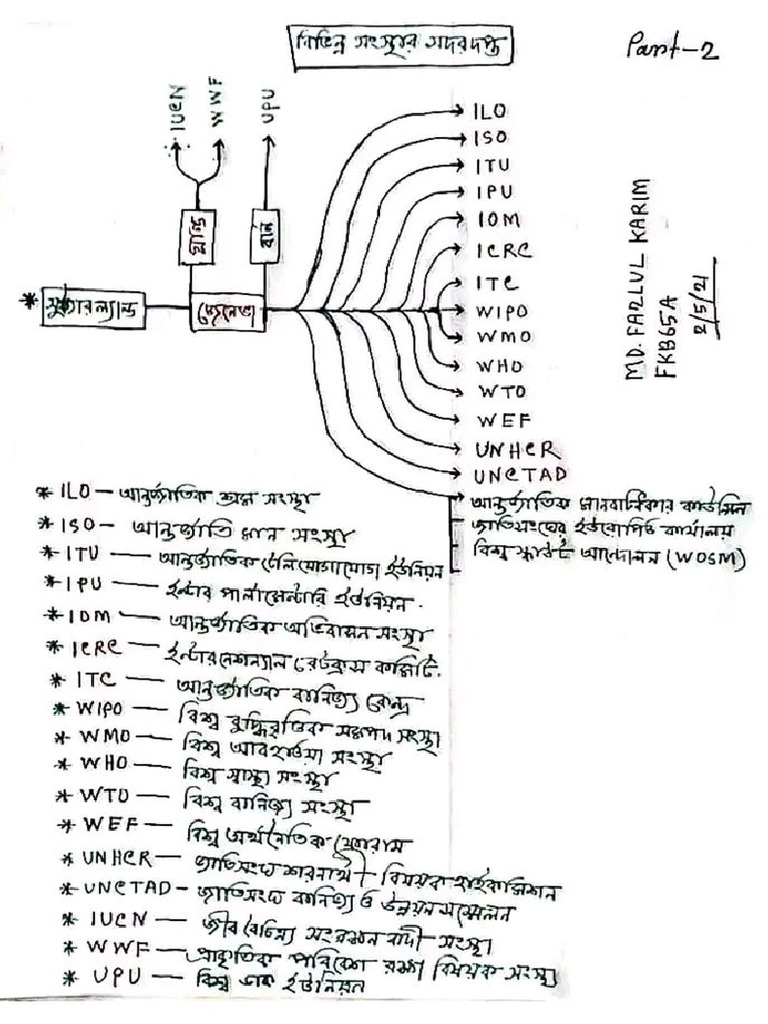 বিভিন্ন সংস্থার সদরদপ্ত
Part-2
IUCN
WWF
UPU
গ্লান্ড
বার্ন
* সুইজারল্যান্ড
জেনেভা
ILO
ISO
ITU
IPU
IOM
ICRC
ITC
WIPO
WMO
WHO
WTO
WEF
UNHCR
UNCTAD
আন্তর্জাতিক মানবাধিকার কাউন্সিল
জাতিসংঘের ইউরোপিও কার্যালয়
বিশ্ব স্কাউট আন্দোলন (WOSM)
MD. FAZLUL KARIM
FKB65A
2/5/21
* ILO — আন্তর্জাতিক শ্রম সংস্থা
* ISO — আন্তর্জাতি মান সংস্থা
* ITU — আন্তর্জাতিক টেলিযোগাযোগ ইউনিয়ন
* IPU — ইন্টার পার্লামেন্টারি ইউনিয়ন.
* IOM — আন্তর্জাতিক অভিবাসন সংস্থা
* ICRC — ইন্টারনেশন্যাল রেডক্রস কমিটি.
* ITC — আন্তর্জাতিক বানিজ্য কেন্দ্র
* WIPO — বিশ্ব বুদ্ধিবৃতিক সম্পদ সংস্থা
* WMO — বিশ্ব আবহাওয়া সংস্থা
* WHO — বিশ্ব স্বাস্থ্য সংস্থা
* WTO — বিশ্ব বানিজ্য সংস্থা
* WEF — বিশ্ব অর্থনৈতিক ফোরাম
* UNHCR — জাতিসংঘ শরনার্থী বিষয়ক হাইকমিশন
* UNCTAD - জাতিসংঘ বানিজ্য ও উন্নয়ন সম্মেলন
* IUCN — জীব বৈচিত্র্য সংরক্ষন বাদী সংস্থা
* WWF — প্রাকৃতিক পরিবেশ রক্ষা বিষয়ক সংস্থা
* UPU — বিশ্ব ডাক ইউনিয়ন